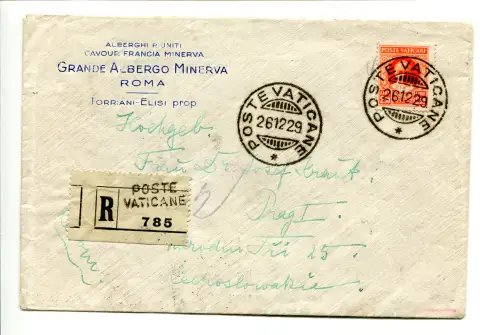 ALBERGHI RIUNITI
CAVOUR FRANCIA MINERVA
GRANDE ALBERGO MINERVA
ROMA
TORRIANI-ELISI prop
POSTE VATICANE
POSTE VATICANE
26 12 29
POSTE VATICANE
26 12 29
Hochgeb.
Frau Dr Josef
Prag I
25
Čechoslowakia
R
POSTE
VATICANE
785